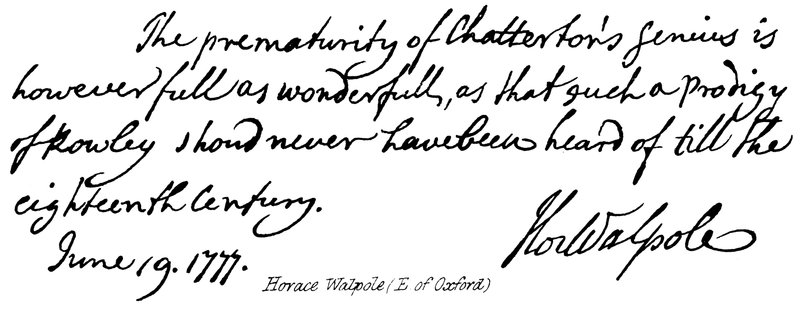 The prematurity of Chatterton's genius is
however full as wonderfull, as that such a prodigy
of Rowley shoud never have been heard of till the
eighteenth Century.
June 19. 1777.
Hor Walpole
Horace Walpole (E. of Oxford)